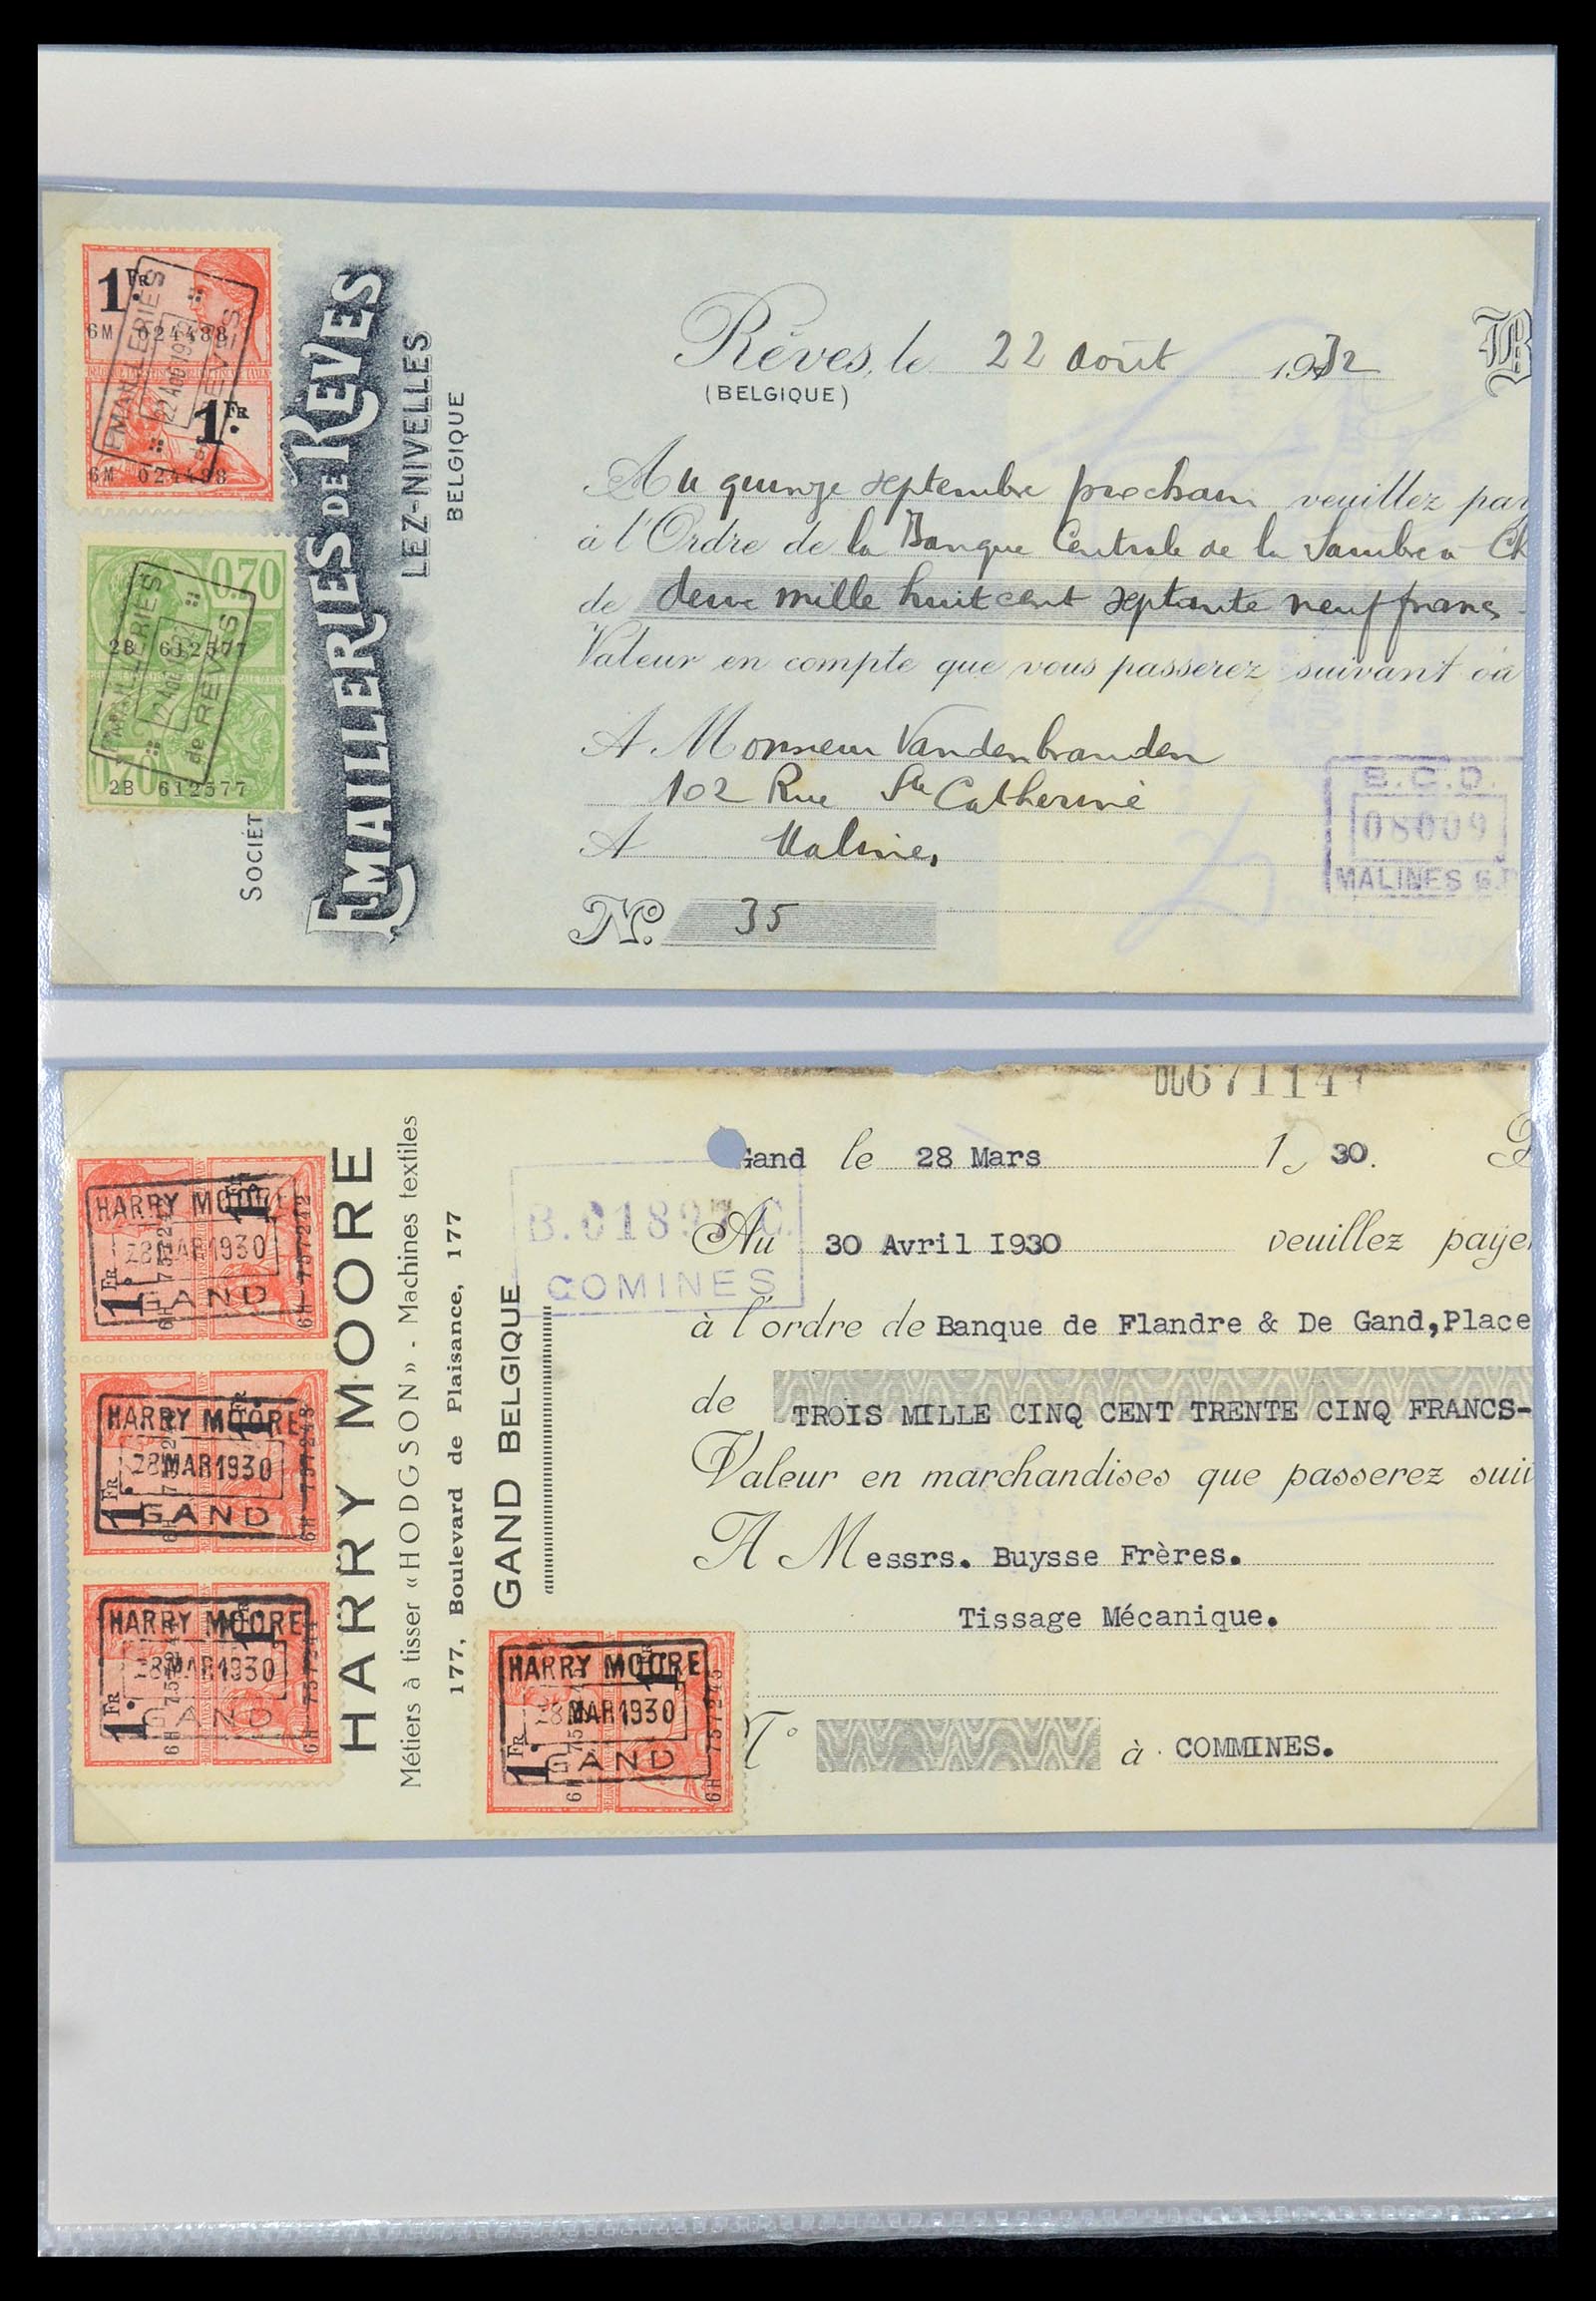 1 FR
6M 024488
1 FR
6M 024488
EMAILLERIES
22 AOU 1932
de REVES
0.70
2B 612577
0.70
2B 612577
EMAILLERIES
22 AOU 1932
de REVES
SOCIÉT
EMAILLERIES DE RÈVES
LEZ-NIVELLES
BELGIQUE
Rêves, le 22 août 1932
(BELGIQUE)
B
Au quinze septembre prochain veuillez pay
à l'Ordre de la Banque Centrale de la Sambre a Ch
de deux mille huit cent septante neuf francs
Valeur en compte que vous passerez suivant
A Monsieur Vandenbranden
102 Rue Ste Catherine
A Malines
No. 35
B.C.D.
08009
MALINES
671147
HARRY MOORE
28 MAR 1930
GAND
1 FR
6H 757242
HARRY MOORE
28 MAR 1930
GAND
1 FR
6H 757243
HARRY MOORE
28 MAR 1930
GAND
1 FR
6H 757244
HARRY MOORE
28 MAR 1930
GAND
1 FR
6H 757245
HARRY MOORE
Métiers à tisser «HODGSON» - Machines textiles
177, Boulevard de Plaisance, 177
GAND BELGIQUE
COMINES
Gand le 28 Mars 1 30.
Au 30 Avril I930 veuillez paye
à l'ordre de Banque de Flandre & De Gand,Place
de TROIS MILLE CINQ CENT TRENTE CINQ FRANCS-
Valeur en marchandises que passerez sui
A Messrs. Buysse Frères.
Tissage Mécanique.
à COMMINES.